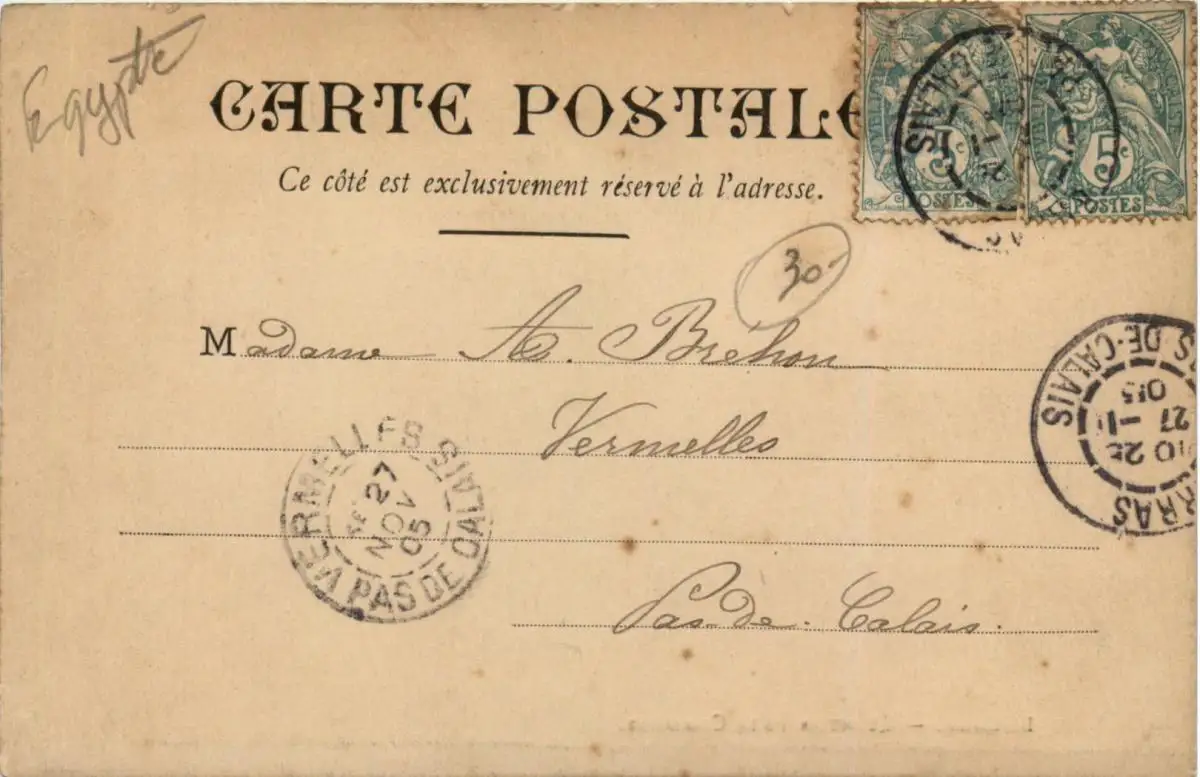 Egypte
CARTE POSTALE
Ce côté est exclusivement réservé à l'adresse.
5c
POSTES
5c
POSTES
CALAIS
30
Madame A. Bréhon
Vermelles
Pas-de-Calais.
VERMELLES
27
NOV
05
PAS DE CALAIS
ARRAS
10 25
27 - 11
05
PAS-DE-CALAIS